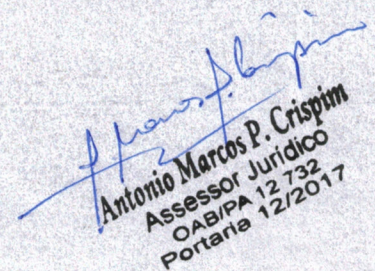 Antonio Marcos P. Crispim
Assessor Jurídico
OAB/PA 12 732
Portaria 12/2017